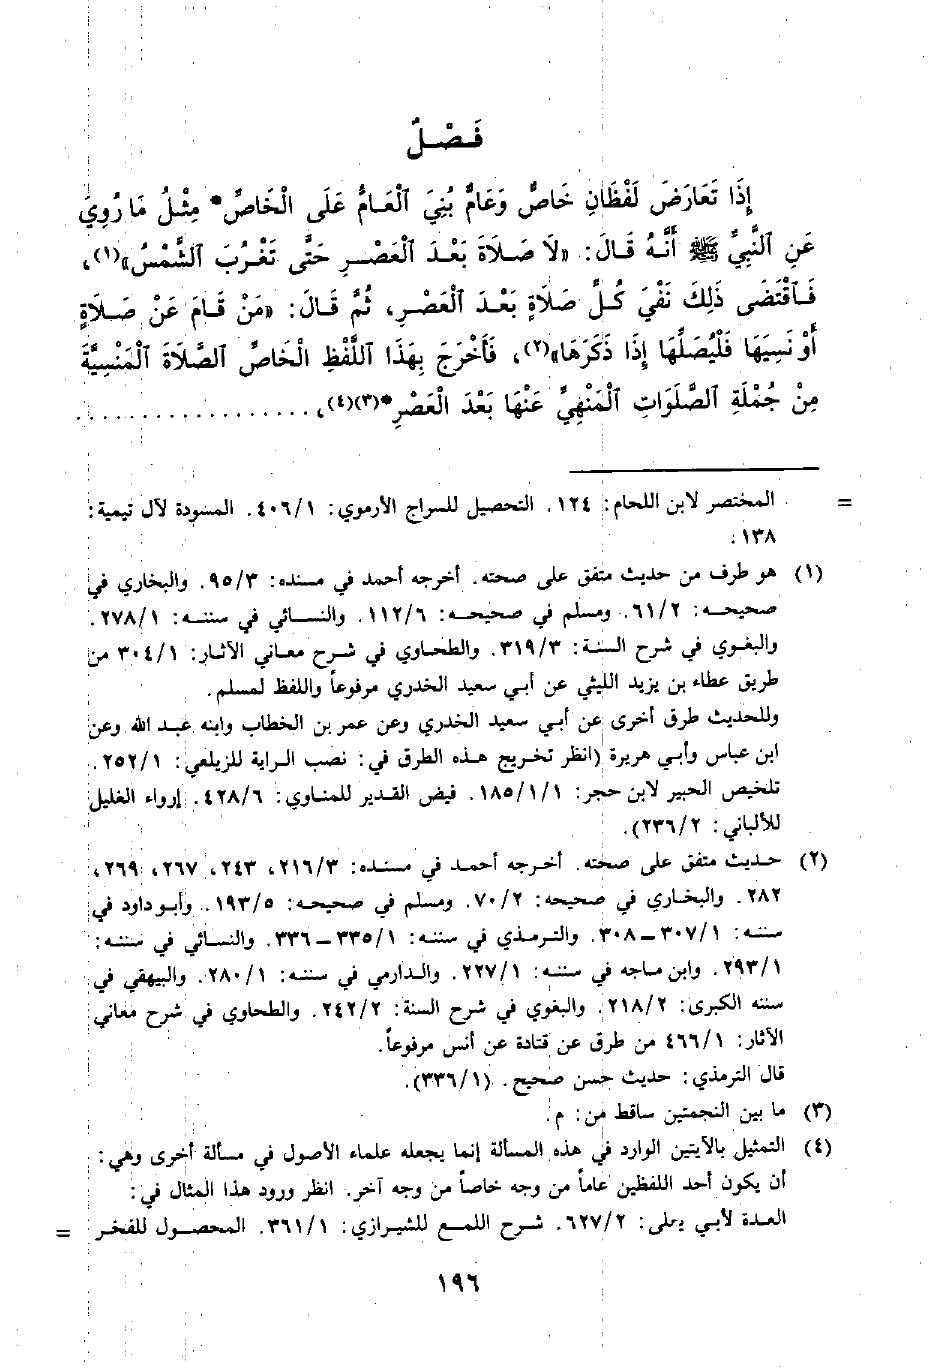 فَـصْـلٌ
إِذَا تَعَارَضَ لَفْظَانِ خَاصٌّ وَعَامٌّ بُنِيَ ٱلْعَامُّ عَلَى الْخَاصِّ* مِثْلُ مَا رُوِيَ
عَنِ ٱلنَّبِيِّ ﷺ أَنَّهُ قَالَ: «لَا صَلَاةَ بَعْدَ ٱلْعَصْرِ حَتَّى تَغْرُبَ ٱلشَّمْسُ»(١)،
فَٱقْتَضَى ذٰلِكَ نَفْيَ كُلِّ صَلَاةٍ بَعْدَ ٱلْعَصْرِ، ثُمَّ قَالَ: «مَنْ نَامَ عَنْ صَلَاةٍ
أَوْ نَسِيَهَا فَلْيُصَلِّهَا إِذَا ذَكَرَهَا»(٢)، فَأَخْرَجَ بِهَذَا ٱللَّفْظِ الْخَاصِّ ٱلصَّلَاةَ ٱلْمَنْسِيَّةَ
مِنْ جُمْلَةِ ٱلصَّلَوَاتِ ٱلْمَنْهِيِّ عَنْهَا بَعْدَ الْعَصْرِ*(٣)(٤)، . . . . . . . . . . . . . . . . . .
= المختصر لابن اللحام: ١٢٤. التحصيل للسراج الأرموي: ٤٠٦/١. المسودة لآل تيمية:
١٣٨.
(١) هو طرف من حديث متفق على صحته. أخرجه أحمد في مسنده: ٩٥/٣. والبخاري في
صحيحه: ٦١/٢. ومسلم في صحيحه: ١١٢/٦. والنسائي في سننه: ٢٧٨/١.
والبغوي في شرح السنة: ٣١٩/٣. والطحاوي في شرح معاني الآثار: ٣٠٤/١ من
طريق عطاء بن يزيد الليثي عن أبي سعيد الخدري مرفوعاً واللفظ لمسلم.
وللحديث طرق أخرى عن أبي سعيد الخدري وعن عمر بن الخطاب وابنه عبد الله وعن
ابن عباس وأبي هريرة (انظر تخريج هذه الطرق في: نصب الراية للزيلعي: ٢٥٢/١.
تلخيص الحبير لابن حجر: ١٨٥/١/١. فيض القدير للمناوي: ٤٢٨/٦. إرواء الغليل
للألباني: ٢٣٦/٢).
(٢) حديث متفق على صحته. أخرجه أحمد في مسنده: ٢١٦/٣، ٢٤٣، ٢٦٧، ٢٦٩،
٢٨٢. والبخاري في صحيحه: ٧٠/٢. ومسلم في صحيحه: ١٩٣/٥. وأبو داود في
سننه: ٣٠٧/١ - ٣٠٨. والترمذي في سننه: ٣٣٥/١ - ٣٣٦. والنسائي في سننه:
٢٩٣/١. وابن ماجه في سننه: ٢٢٧/١. والدارمي في سننه: ٢٨٠/١. والبيهقي في
سننه الكبرى: ٢١٨/٢. والبغوي في شرح السنة: ٢٤٢/٢. والطحاوي في شرح معاني
الآثار: ٤٦٦/١ من طرق عن قتادة عن أنس مرفوعاً.
قال الترمذي: حديث حسن صحيح. (٣٣٦/١).
(٣) ما بين النجمتين ساقط من: م.
(٤) التمثيل بالآيتين الوارد في هذه المسألة إنما يجعله علماء الأصول في مسألة أخرى وهي:
أن يكون أحد اللفظين عاماً من وجه خاصاً من وجه آخر. انظر ورود هذا المثال في:
العدة لأبي يعلى: ٦٢٧/٢. شرح اللمع للشيرازي: ٣٦١/١. المحصول للفخر =
١٩٦